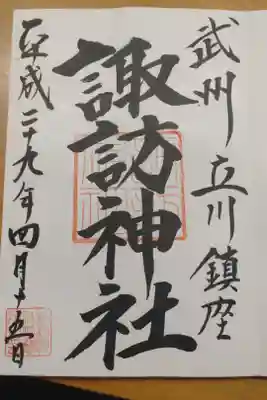 武州 立川鎮座
諏訪神社
平成二十九年四月十五日